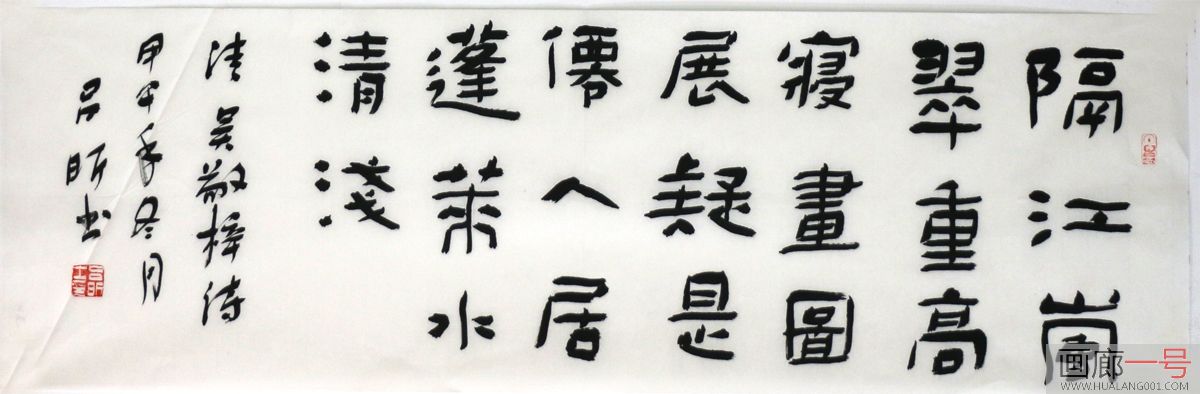 隔江嵐
翠重高
寢畫圖
展疑是
僊人居
蓬萊水
清淺
清吴敬梓诗
甲午年冬月
吕昕书
画廊一号
WWW.HUALANG001.COM